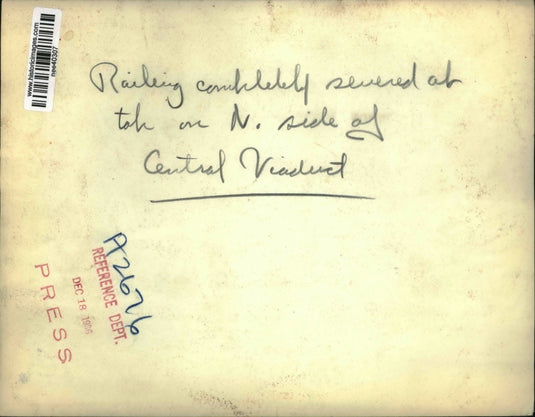 www.historicimages.com
nee40307
Railing completely severed at
top on N. side of
Central Viaduct
A2626
REFERENCE DEPT.
DEC 18
PRESS